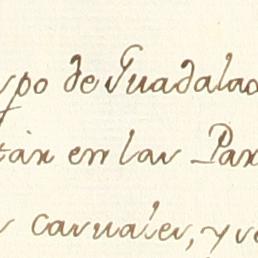 po de Guadalac
tàn en las Par
carnales, y ve